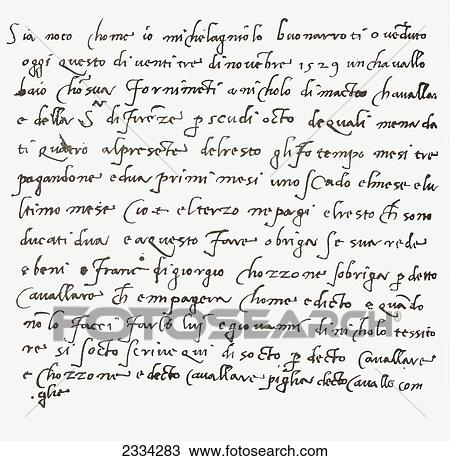 Sia noto chome io michelagniolo buonarroti o veduto
oggi questo di venti tre di novenbre 1529 un chavallo
baio cho sua fornimeti a nicholo di matteo chavallar
e della S^a di firenze p scudi octo de quali me na da
ti quatro al presete del resto gli fo tempo mesi tre
pagandone e dua primi mesi uno scudo el mese e lu
ltimo mese cio e el terzo ne pagi el resto ch sono
ducati dua e a questo fare obriga se sua rede
e beni e franc° di giorgio chozzone sobriga p detto
cavallaro ch e mpagera chome e dicto e quado
no lo facci farlo lui e giovanni di nicholo tessito
re si socto scrive qui di socto p decto cavallare
e chozzone e decto cavallare piglia decto cavallo com
glie
FOTOSEARCH
2334283 www.fotosearch.com